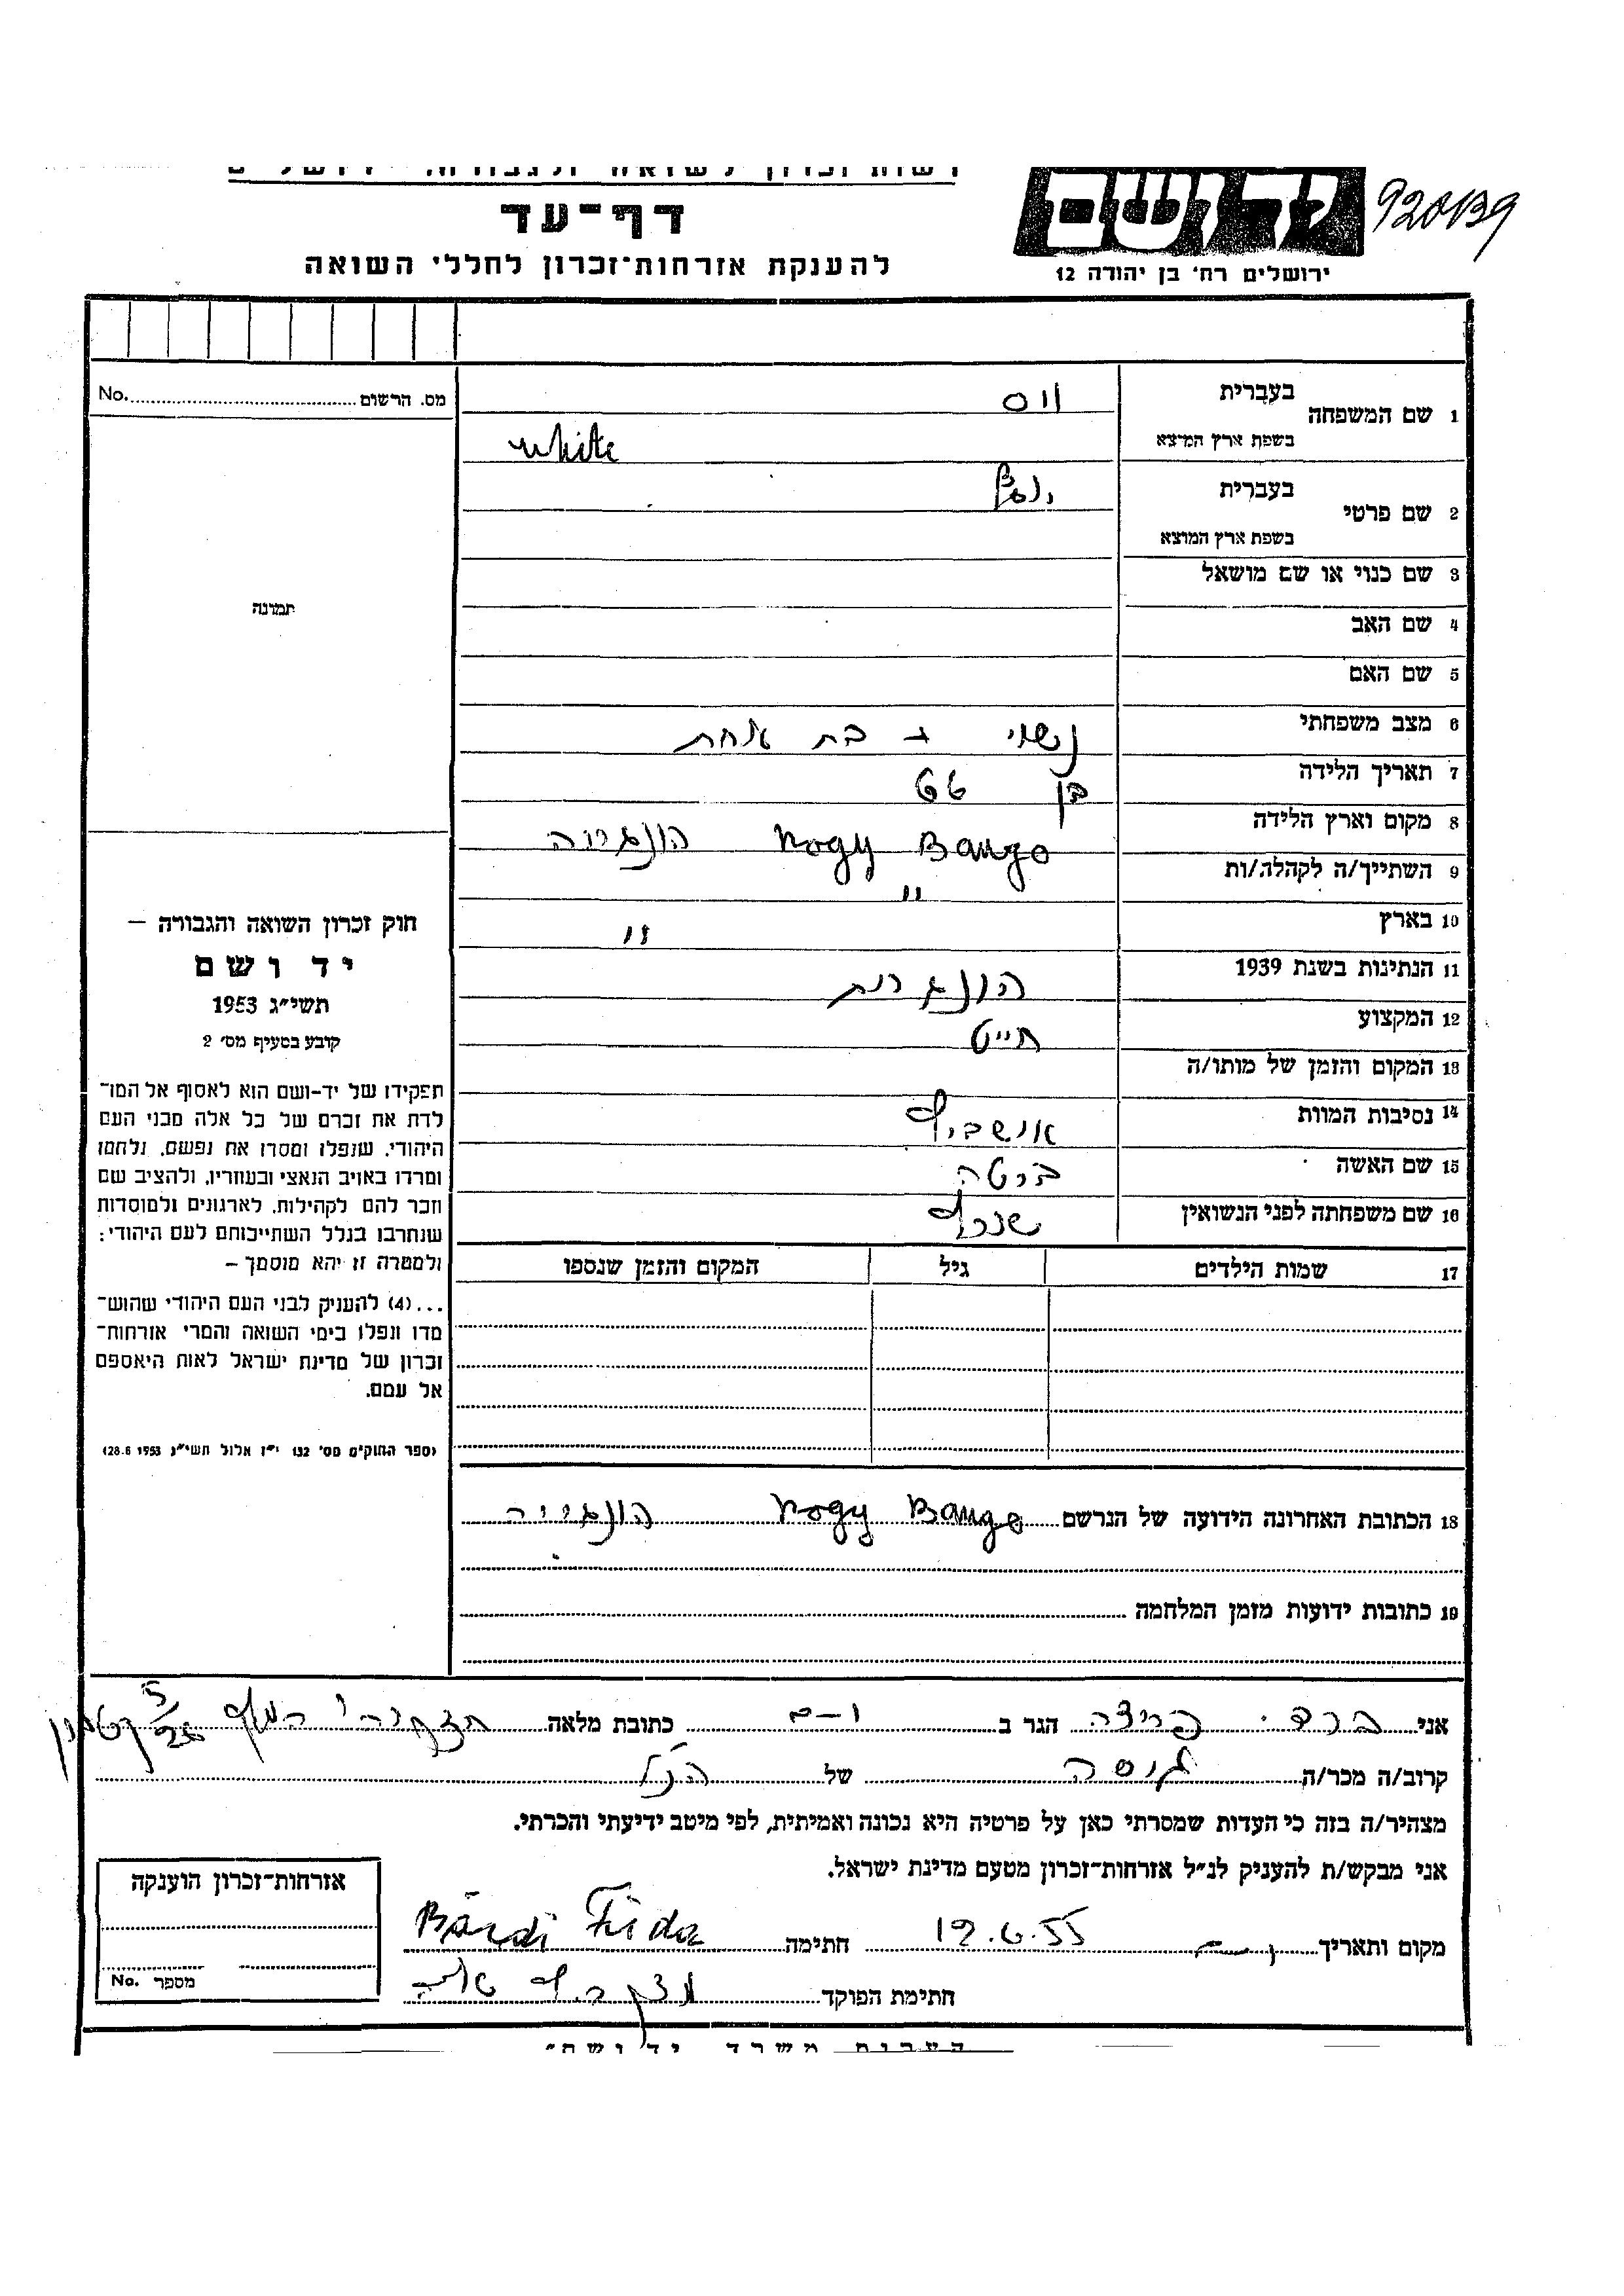 רשות זכרון לשואה ולגבורה, ירושלים
דף-עד
להענקת אזרחות-זכרון לחללי השואה
ידושם
920139
ירושלים רח' בן יהודה 12
מס. הרשום No.
1 שם המשפחה בעברית ווס
בשפת ארץ המוצא White
2 שם פרטי בעברית
בשפת ארץ המוצא
3 שם כנוי או שם מושאל
4 שם האב
5 שם האם
6 מצב משפחתי נשוי + בת אחת
7 תאריך הלידה בן 66
8 מקום וארץ הלידה Nogy Bango הונגריה
9 השתייך/ה לקהלה/ות "
10 בארץ "
11 הנתינות בשנת 1939 הונגרית
12 המקצוע חייט
13 המקום והזמן של מותו/ה
14 נסיבות המוות אושביץ
15 שם האשה ברטה
16 שם משפחתה לפני הנשואין
17 שמות הילדים גיל המקום והזמן שנספו
תמונה
חוק זכרון השואה והגבורה –
יד ושם
תשי"ג 1953
קובע בסעיף מס' 2
תפקידו של יד-ושם הוא לאסוף אל המו־
לדת את זכרם של כל אלה מבני העם
היהודי, שנפלו ומסרו את נפשם, נלחמו
ומרדו באויב הנאצי ובעוזריו, ולהציב שם
וזכר להם לקהילות, לארגונים ולמוסדות
שנחרבו בגלל השתייכותם לעם היהודי:
ולמטרה זו יהא מוסמך –
...(4) להעניק לבני העם היהודי שהוש־
מדו ונפלו בימי השואה והמרי אזרחות־
זכרון של מדינת ישראל לאות היאספם
אל עמם.
(ספר החוקים מס' 132 י"ז אלול תשי"ג 28.8.1953)
18 הכתובת האחרונה הידועה של הנרשם Nogy Bango הונגריה
19 כתובות ידועות מזמן המלחמה
אני ברדי פרידה הגר ב י-ם כתובת מלאה
קרוב/ה מכר/ה גיסה של הנ"ל
מצהיר/ה בזה כי העדות שמסרתי כאן על פרטיה היא נכונה ואמיתית, לפי מיטב ידיעתי והכרתי.
אני מבקש/ת להעניק לנ"ל אזרחות-זכרון מטעם מדינת ישראל.
מקום ותאריך י-ם 19.6.55 חתימה Bárdi Frida
חתימת הפוקד
אזרחות-זכרון הוענקה
מספר No.
הערות משרד יד ושם